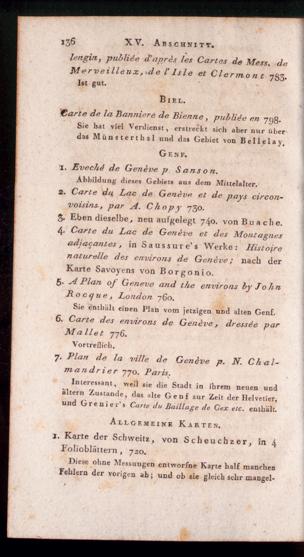 136 XV. Abschnitt.
lengin, publiée d'après les Cartes de Mess. de
Merveilleux, de l'Isle et Clermont 783.
Ist gut.
Biel.
Carte de la Banniere de Bienne, publiée en 798.
Sie hat viel Verdienst, erstreckt sich aber nur über
das Münsterthal und das Gebiet von Bellelay.
Genf.
1. Eveché de Genève p. Sanson.
Abbildung dieses Gebiets aus dem Mittelalter.
2. Carte du Lac de Genève et de pays circon-
voisins, par A. Chopy 730.
3. Eben dieselbe, neu aufgelegt 740. von Buache.
4. Carte du Lac de Genève et des Montagnes
adjaçantes, in Saussure's Werke: Histoire
naturelle des environs de Genève; nach der
Karte Savoyens von Borgonio.
5. A Plan of Geneve and the environs by John
Rocque, London 760.
Sie enthält einen Plan vom jetzigen und alten Genf.
6. Carte des environs de Genève, dressée par
Mallet 776.
Vortreflich.
7. Plan de la ville de Genève p. N. Chal-
mandrier 770. Paris.
Interessant, weil sie die Stadt in ihrem neuen und
ältern Zustande, das alte Genf zur Zeit der Helvetier,
und Grenier's Carte du Baillage de Gex etc. enthält.
Allgemeine Karten.
1. Karte der Schweitz, von Scheuchzer, in 4
Folioblättern, 720.
Diese ohne Messungen entworfne Karte half manchen
Fehlern der vorigen ab; und ob sie gleich sehr mangel-